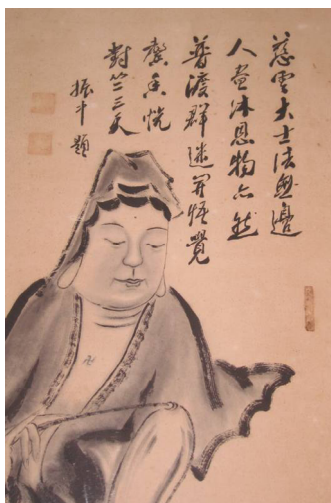 慈雲大士法無邊
人畜沐恩物亦然
普渡群迷開悟覺
香恍
對竺三天
振斗題
卍